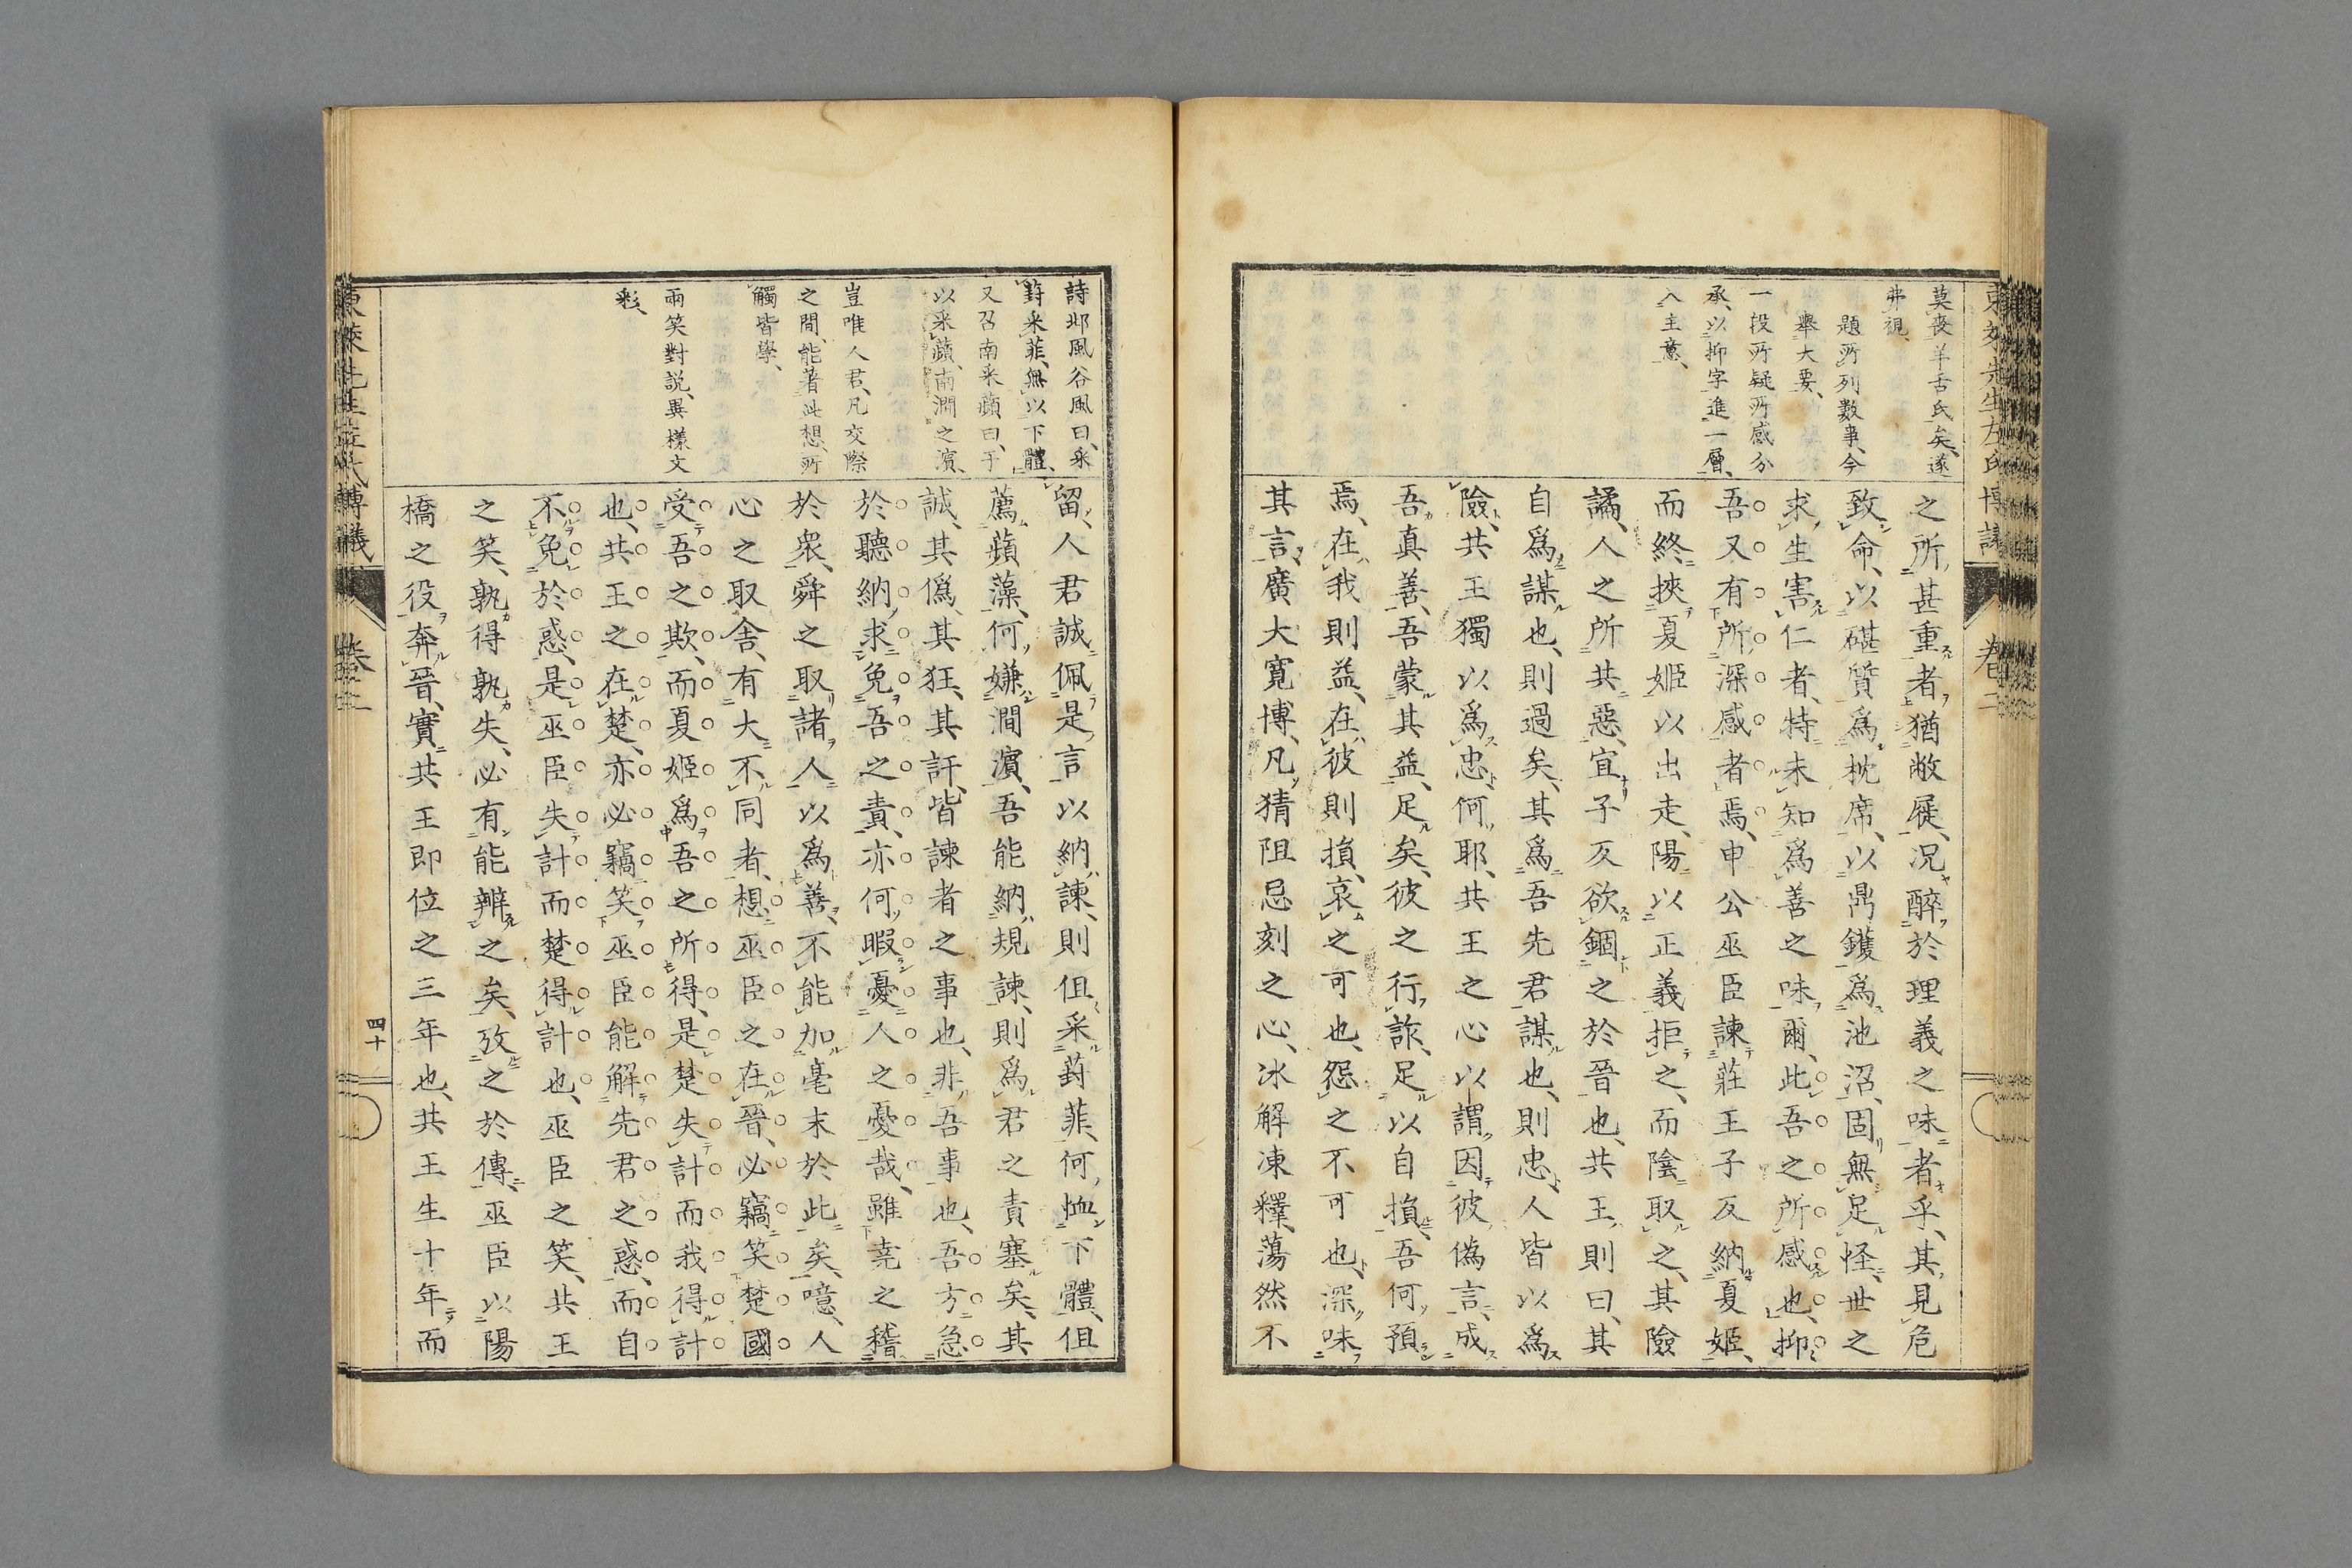 莫喪羊舌氏矣、遂
弗視、
題所列數事、今
舉大要、
一段所疑所感分
承、以抑字進一層、
入主意、
之所甚重者、猶敝屣、况醉於理義之味者乎、其見危
致命、以碪質爲枕席、以鼎鑊爲池沼、固無足怪、世之
求生害仁者、特未知爲善之味爾、此吾之所感也、抑
吾又有所深感者焉、申公巫臣諫莊王子反納夏姬、
而終挾夏姬以出走、陽以正義拒之、而陰取之、其險
譎、人之所共惡、宜子反欲錮之於晉也、共王則曰、其
自爲謀也、則過矣、其爲吾先君謀也、則忠、人皆以爲
險、共王獨以爲忠、何耶、共王之心以謂、因彼僞言、成
吾真善、吾蒙其益、足矣、彼之行詐、足以自損、吾何預
焉、在我則益、在彼則損、哀之可也、怨之不可也、深味
其言、廣大寛博、凡猜阻忌刻之心、冰解凍釋、蕩然不
詩邶風谷風曰、采
葑采菲、無以下體、
又召南采蘋曰、于
以采蘋、南澗之濱、
豈唯人君、凡交際
之間、能著此想、所
觸皆學、
兩笑對説、異樣文
彩、
留、人君誠佩是言以納諫、則但采葑菲、何恤下體、但
薦蘋藻、何嫌澗濱、吾能納規諫、則爲君之責塞矣、其
誠、其僞、其狂、其訐、皆諫者之事也、非吾事也、吾方急
於聽納、求免吾之責、亦何暇憂人之憂哉、雖堯之稽
於衆、舜之取諸人以爲善、不能加毫末於此矣、噫、人
心之取舍、有大不同者、想巫臣之在晉、必竊笑楚國
受吾之欺、而夏姬爲吾之所得、是楚失計而我得計
也、共王之在楚、亦必竊笑巫臣能解先君之惑、而自
不免於惑、是巫臣失計而楚得計也、巫臣之笑、共王
之笑、孰得孰失、必有能辨之矣、攷之於傳、巫臣以陽
橋之役奔晉、實共王即位之三年也、共王生十年而
四十